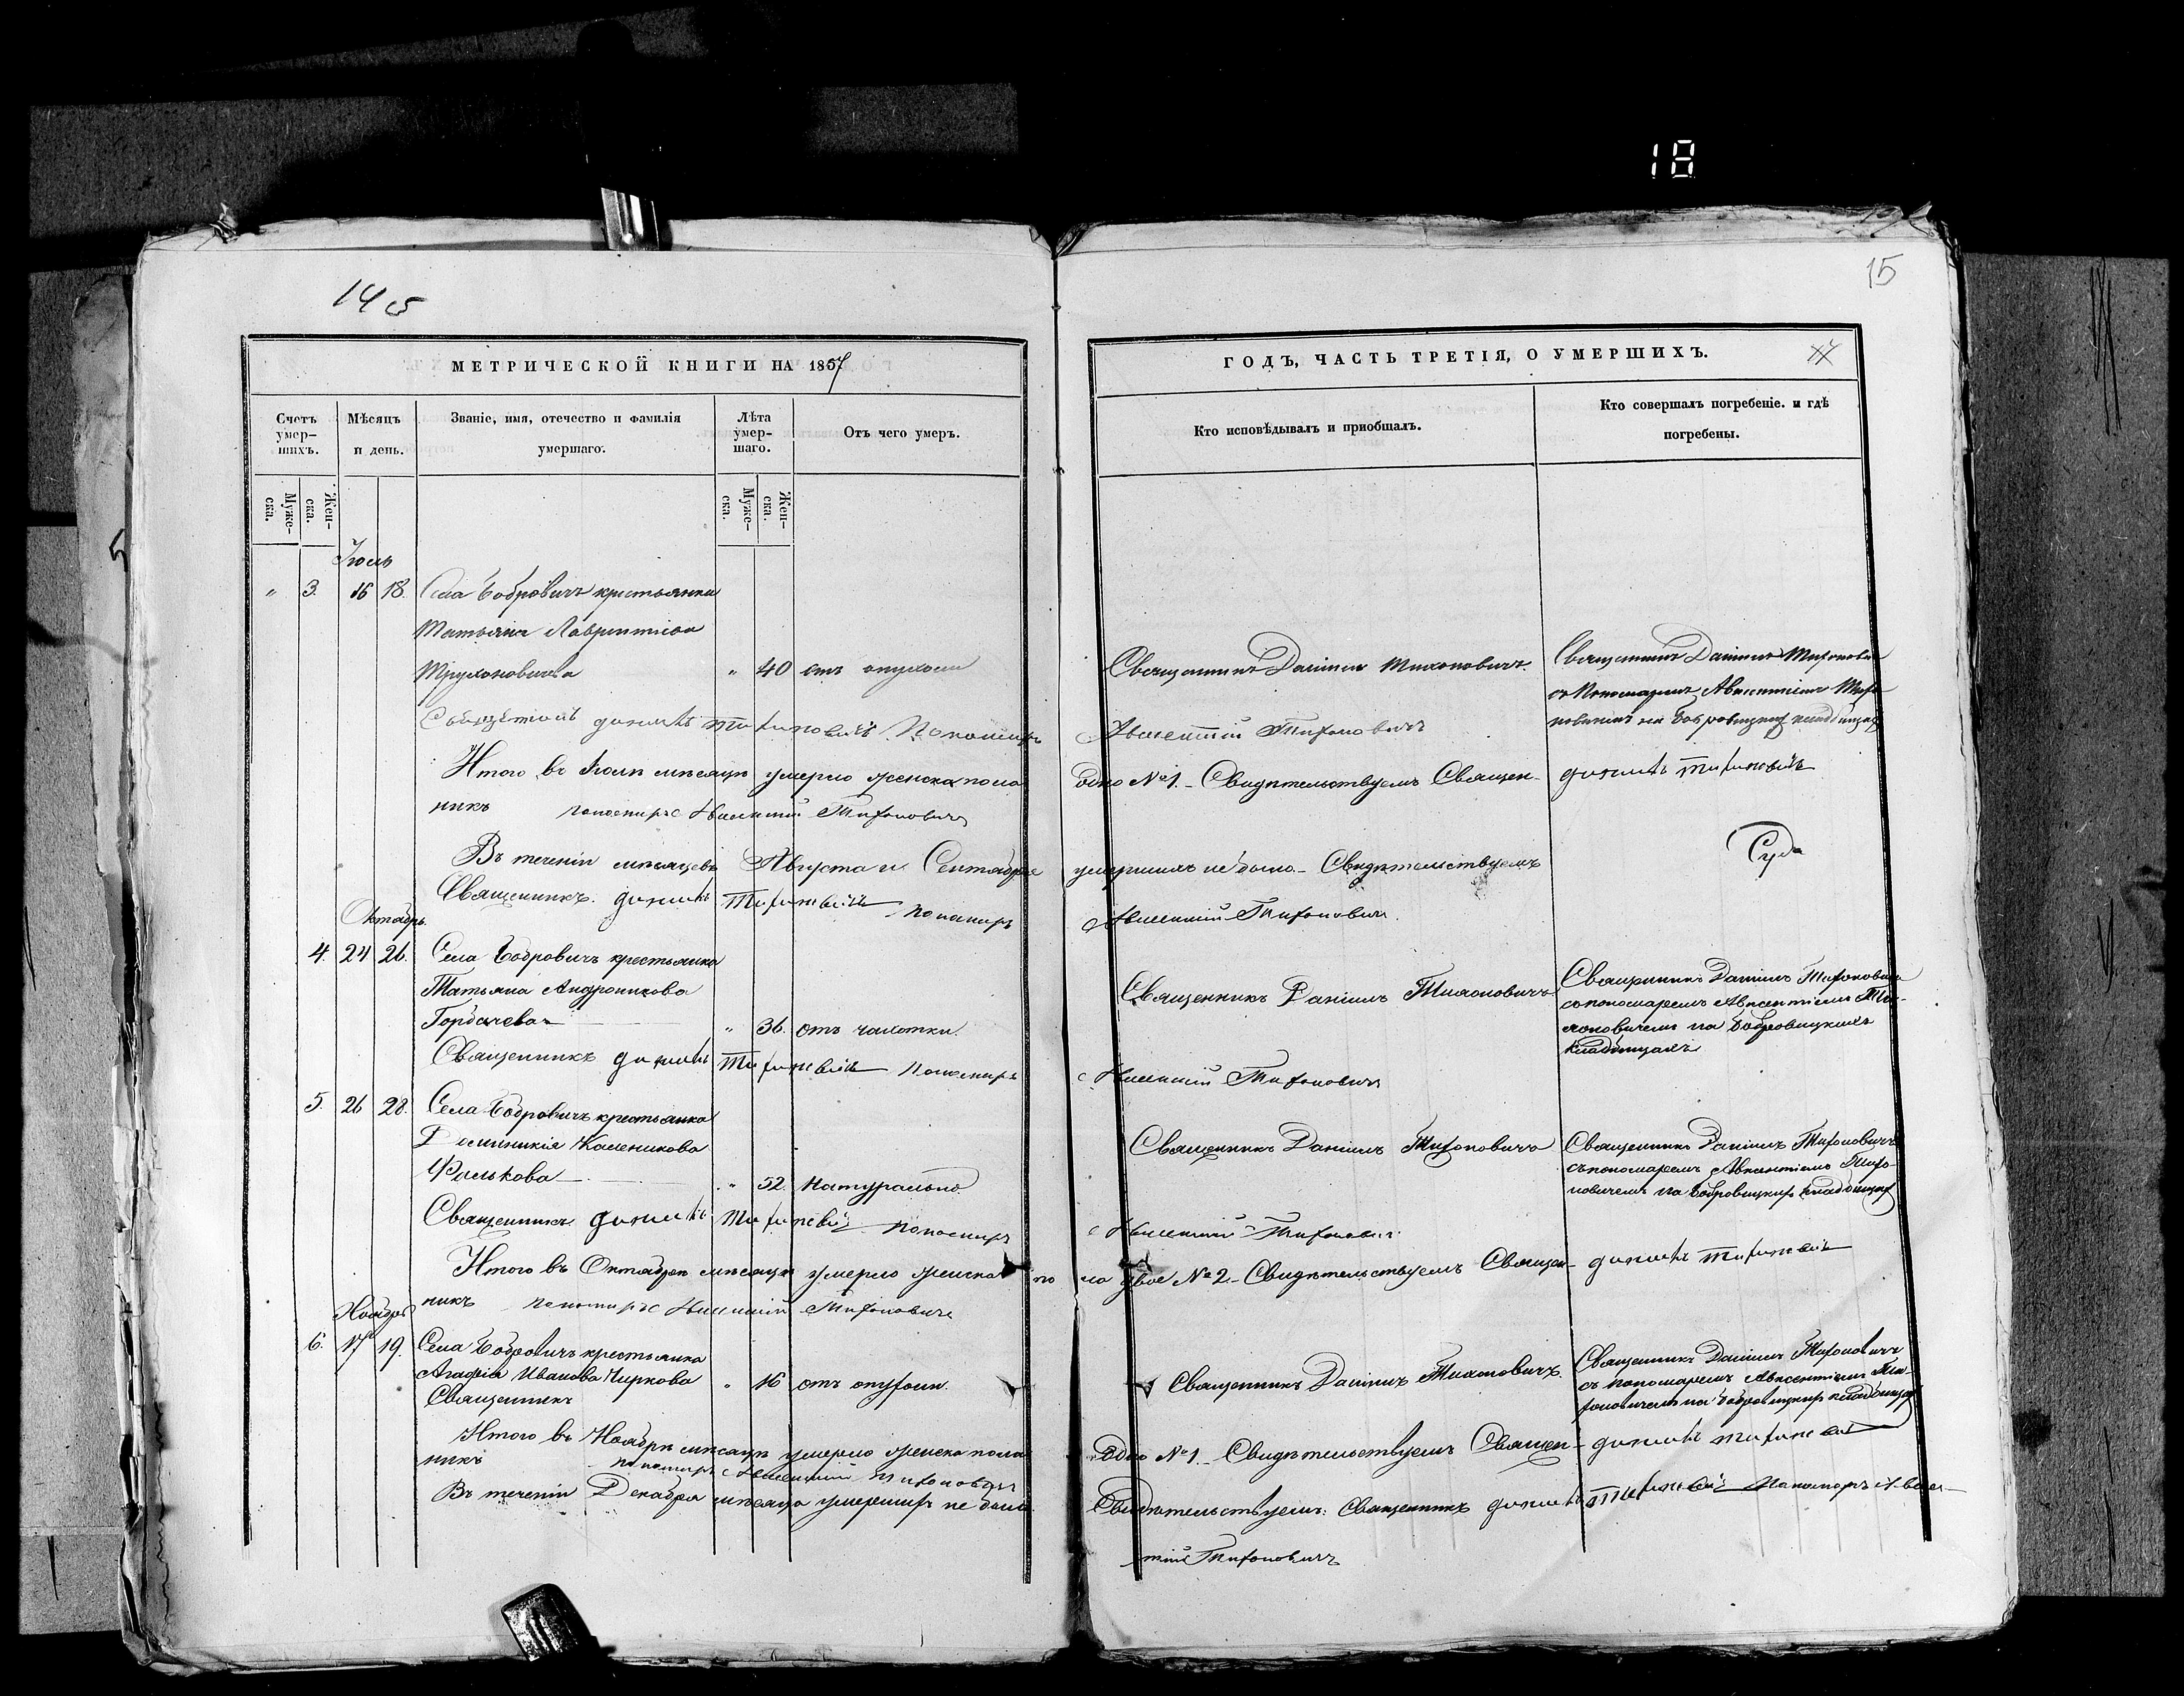 18
14 об
15
МЕТРИЧЕСКОЙ КНИГИ НА 1857
ГОДЪ, ЧАСТЬ ТРЕТІЯ, О УМЕРШИХЪ.
Счетъ умер-шихъ.
Мѣсяцъ и день.
Званіе, имя, отечество и фамилія умершаго.
Лѣта умер-шаго.
Отъ чего умеръ.
Кто исповѣдывалъ и приобщалъ.
Кто совершалъ погребеніе. и гдѣ погребены.
Муже-ска.
Жен-ска.
Муже-ска.
Жен-ска.
Іюль
" 3. 16 18. Села Бобровичъ крестьянка
Татьяна Лаврентіева
Трухоновичева " 40 отъ опухоли
Священникъ Даніилъ Тихоновичъ
Священникъ Даніилъ Тихонович
съ Пономаремъ Авксентіемъ Тихо-
новичемъ на Бобровицких кладбищах
Священникъ Даніилъ Тихоновичъ Пономарь
Авксентій Тихоновичъ
Итого въ Іюлѣ мѣсяцѣ умерло женска пола
одно №1. - Свидѣтельствуемъ Священ-
Даніилъ Тихоновичъ
никъ Пономарь Авксентій Тихоновичъ
Въ теченіи мѣсяцевъ Августа и Сентября
умершихъ не было - Свидѣтельствуемъ
Священникъ Даніилъ Тихоновичъ Пономарь
Авксентій Тихоновичъ.
Октябрь.
4. 24 26. Села Бобровичъ крестьянка
Татьяна Андроникова
Горбачева " 36. отъ чахотки.
Священникъ Даніилъ Тихоновичъ
Священникъ Даніилъ Тихонович
съ пономаремъ Авксентіемъ Ти-
хоновичемъ на Бобровицкихъ
кладбищахъ
Священникъ Даніилъ Тихоновичъ Пономарь
Авксентій Тихоновичъ
5. 26 28. Села Бобровичъ крестьянка
Доминикія Каленикова
Фалькова " 52. натурально.
Священникъ Даніилъ Тихоновичъ
Священникъ Даніилъ Тихоновичъ
съ пономаремъ Авксентіемъ Тихо-
новичемъ на Бобровицких кладбищах
Священникъ Даніилъ Тихоновичъ Пономарь
Авксентій Тихоновичъ
Итого въ Октябрѣ мѣсяцѣ умерло женска по
ла двое №2. - Свидѣтельствуемъ Священ-
Даніилъ Тихоновичъ
никъ Пономарь Авксентій Тихоновичъ
Ноябрь
6. 17 19. Села Бобровичъ крестьянка
Агафія Иванова Чиркова " 16 отъ опухоли.
Священникъ Даніилъ Тихоновичъ.
Священникъ Даніилъ Тихоновичъ
съ пономаремъ Авксентіемъ Ти-
хоновичемъ на Бобровицких кладбищах
Священникъ
Итого въ Ноябрѣ мѣсяцѣ умерло женска пола
одно №1. - Свидѣтельствуемъ Священ-
Даніилъ Тихоновичъ
никъ Пономарь Авксентій Тихоновичъ
Въ теченіи Декабря мѣсяца умерших не было
Свидѣтельствуемъ: Священникъ Даніилъ Тихоновичъ Пономарь Авксен-
тій Тихоновичъ